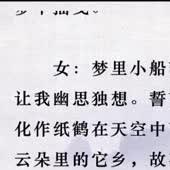 女：梦里小船
让我幽思独想。誓
化作纸鹤在天空中
云朵里的它乡，故